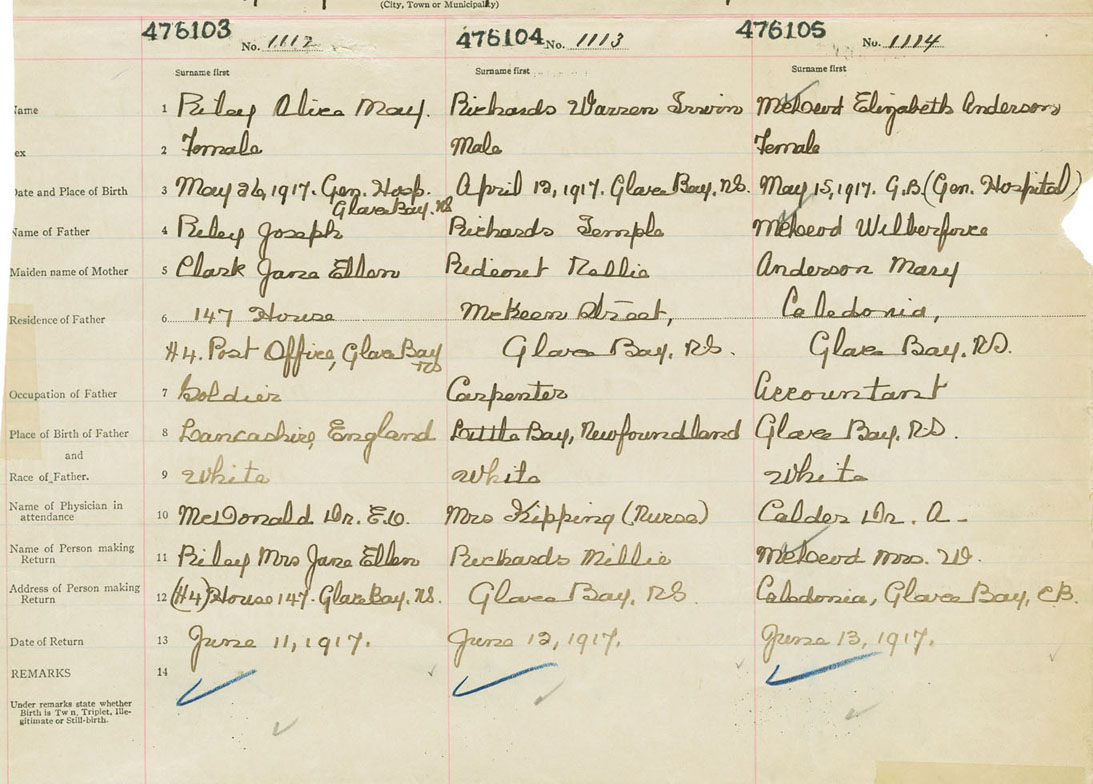 (City, Town or Municipality)
476103 No. 1112 476104 No. 1113 476105 No. 1114
Surname first Surname first Surname first
Name 1 Riley Alice May. Richards Warren Irwin McLeod Elizabeth Anderson
ex 2 Female Male Female
Date and Place of Birth 3 May 26, 1917. Gen. Hosp. April 12, 1917. Glace Bay, N.S. May 15, 1917. G.B. (Gen. Hospital)
Glace Bay. N.S.
Name of Father 4 Riley Joseph Richards Temple McLeod Wilberforce
Maiden name of Mother 5 Clark Jane Ellen Rideout Nellie Anderson Mary
Residence of Father 6 147 House McKeen Street, Caledonia,
#4. Post Office, Glace Bay Glace Bay, N.S. Glace Bay, N.S.
NS
Occupation of Father 7 Soldier Carpenter Accountant
Place of Birth of Father 8 Lancashire, England Little Bay, Newfoundland Glace Bay, N.S.
and
Race of Father. 9 White White White
Name of Physician in
attendance 10 McDonald Dr. E.O. Mrs Kipping (Nurse) Calder Dr. A.
Name of Person making
Return 11 Riley Mrs Jane Ellen Richards Nillie McLeod Mrs. W.
Address of Person making
Return 12 (#4) House 147. Glace Bay. N.S. Glace Bay, N.S. Caledonia, Glace Bay, C.B.
Date of Return 13 June 11, 1917. June 12, 1917. June 13, 1917.
REMARKS 14
Under remarks state whether
Birth is Tw n, Triplet, Ille-
gitimate or Still-birth.